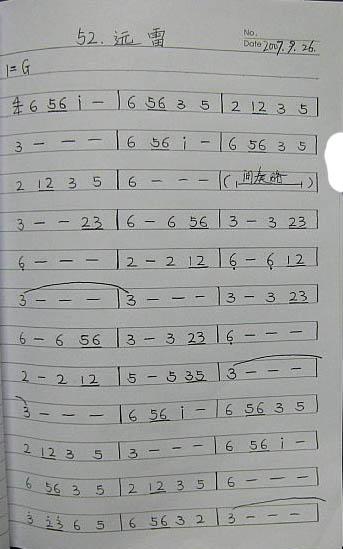 52. 远雷
No.
Date 2007.9.26.
1=G
4/4 6 56 i - | 6 56 3 5 | 2 12 3 5 |
3 - - - | 6 56 i - | 6 56 3 5 |
2 12 3 5 | 6 - - - | ( 间奏略 ) |
3 - - 23 | 6 - 6 56 | 3 - 3 23 |
6̣ - - - | 2 - 2 12 | 6̣ - 6̣ 12 |
3 - - - | 3 - - - | 3 - 3 23 |
6 - 6 56 | 3 - 3 23 | 6̣ - - - |
2 - 2 12 | 5 - 5 35 | 3 - - - |
3 - - - | 6 56 i - | 6 56 3 5 |
2 12 3 5 | 3 - - - | 6 56 i - |
6 56 3 5 | 2 12 3 5 | 6 - - - |
3̇ 2̇3̇ 6 5 | 6 56 3 2 | 3 - - - |